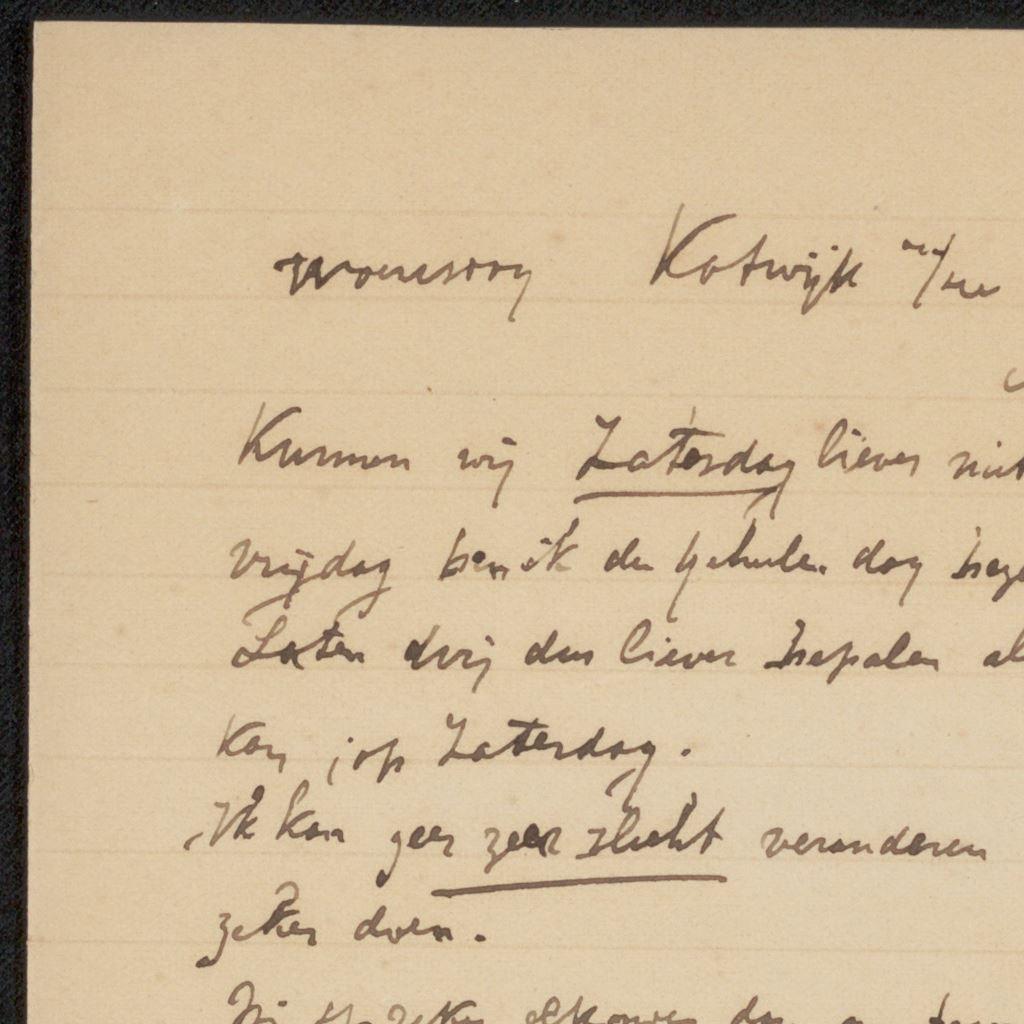 Woensdag Katwijk
Kunnen wij Zaterdag liever niet
Vrijdag ben ik den geheelen dag beze
Laten wij dus liever bepalen al
Kan, op Zaterdag.
Ik kan zeer slecht veranderen
zeker doen.